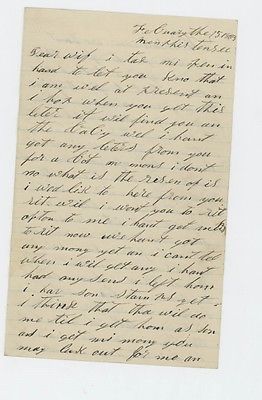 Febuary the 15 1863
memphis tensee
Dear wif i tak mi pen in
hand to let you kno that
i am wel at present an
i hop when you get this
leter it wil find you an
the baby wel i hant
got any leters from you
for a bot a month i dont
no what is the resen of is
i wod lik to here from you
rit wil i want you to rit
opton to me i hant got much
to rit now we hant got
any mony yet an i cant tel
when i wil get any i hant
had any sens i left hom
i hav som stamms yet i
i think that tha wil do
me til i get hom as son
as i get mi mony you
may look out for me an